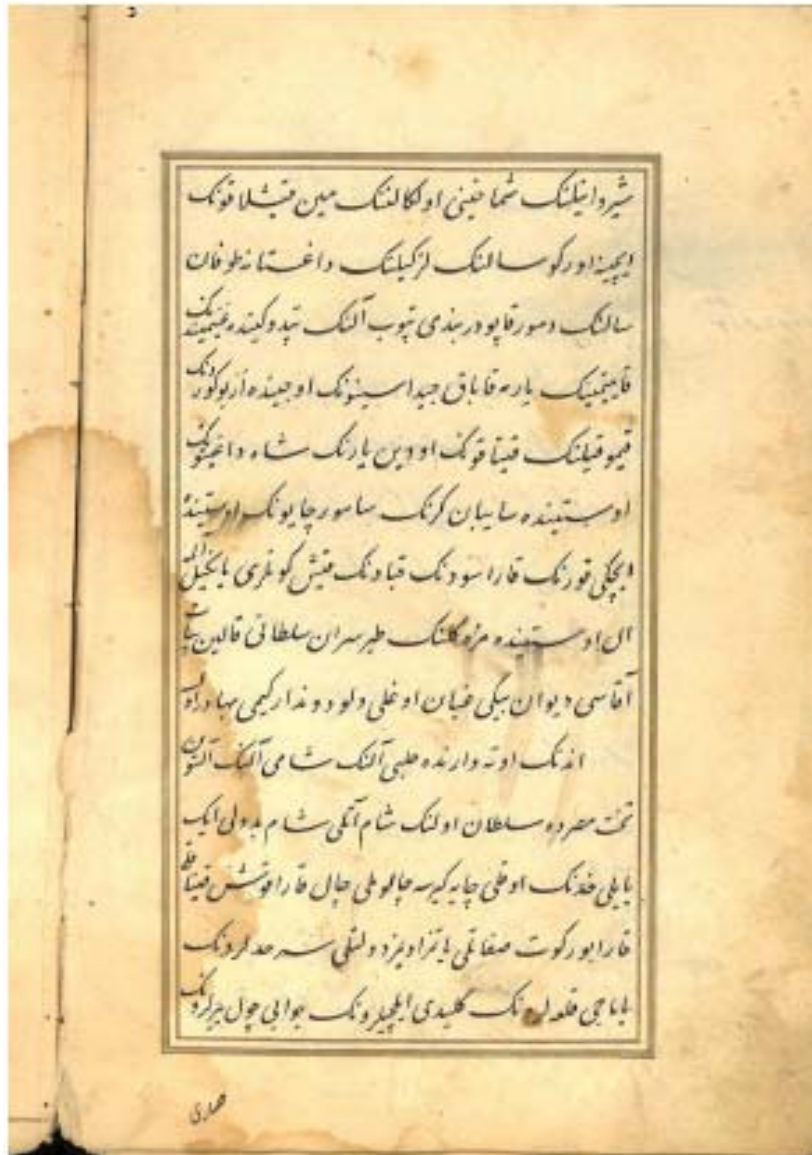 شیروانیلنک شماخینی اولکالنک مین قیشلاقونک
ایچینه اورکو سالنک لزکیلنک داغستانه طوفان
سالنک دمور قاپو دربندی تپوب آلنک تپدوکینده
قامیتمینک یارسه قاباق جیداسینونک اوجینده
قیموقیلنک قیتاقونک اودین یارنک شاه داغینونک
اوستینده سایبان کرنک سامور چایونک اوستینده
ایچکی قورنک قارا سودنک قبادنک قیش کونلری
ال اوستینده مره کلنک طبرسران سلطانی قالین
آقاسی دیوان بیکی خیان اوغلی ولو دوندار کیمی
اندنک اوته وارنده حلبی آلنک شامی آلنک آلتون
تخت مصرده سلطان اولنک شام آتلی شام بدولی
یایلی خدنک اوقلی چایه کیرسه چالوملی چال قارا قوش
قارا بورکوت صفاتلی دولتلی سرحدلرونک
یاباجی قلعه لرونک کلیدی ایلچیلرونک جوابی چول